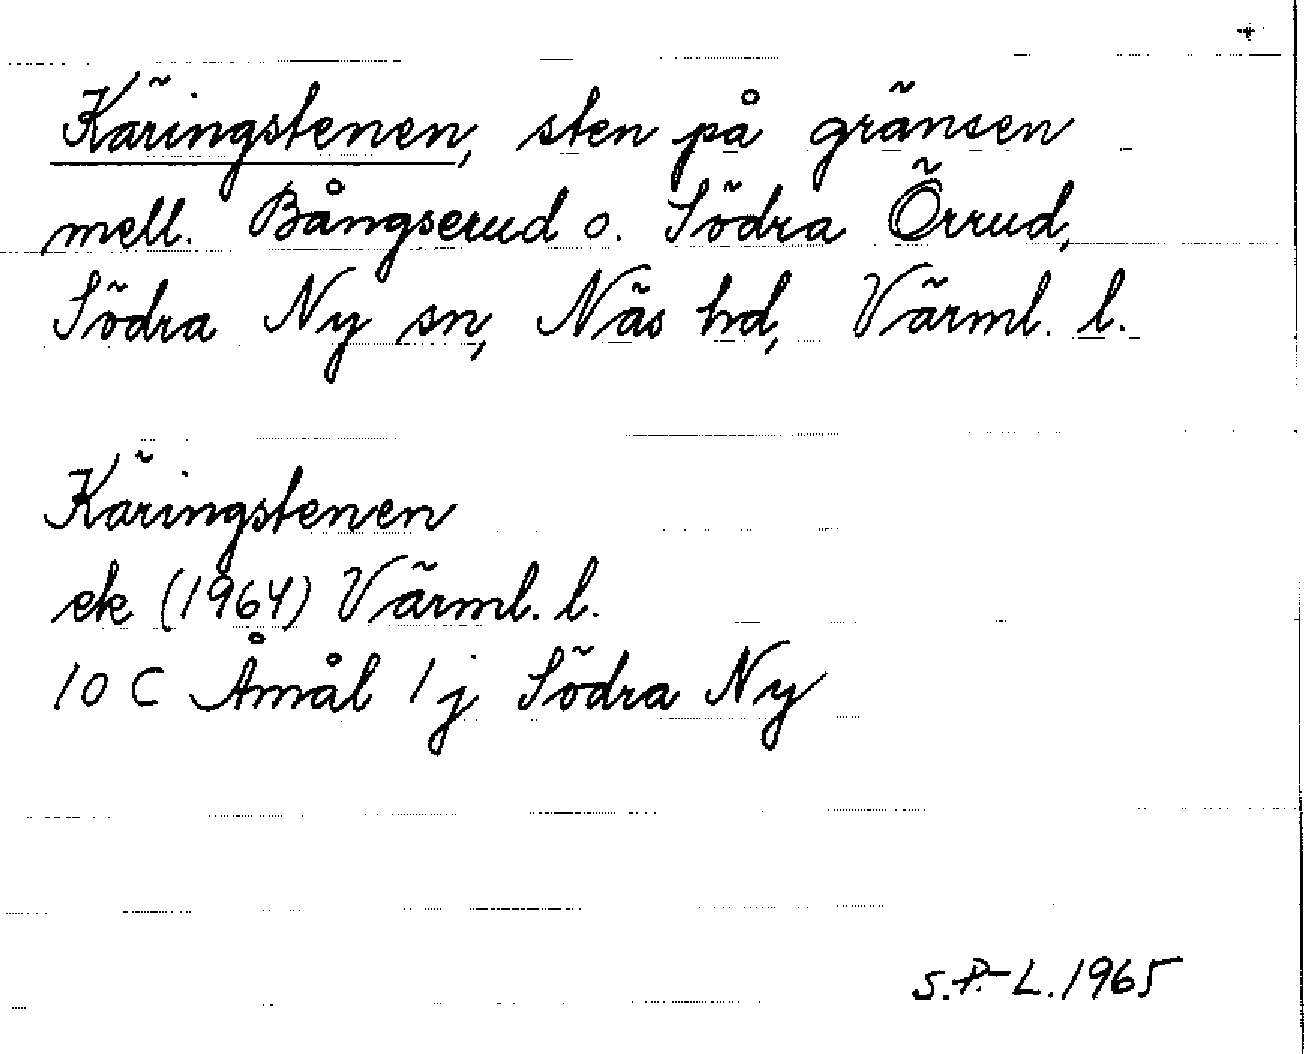 Käringstenen, sten på gränsen
mell. Bångserud o. Södra Örrud,
Södra Ny sn, Näs hd, Värml. l.
Käringstenen
ek (1964) Värml. l.
10 C Åmål 1 j Södra Ny
S.P.-L. 1965